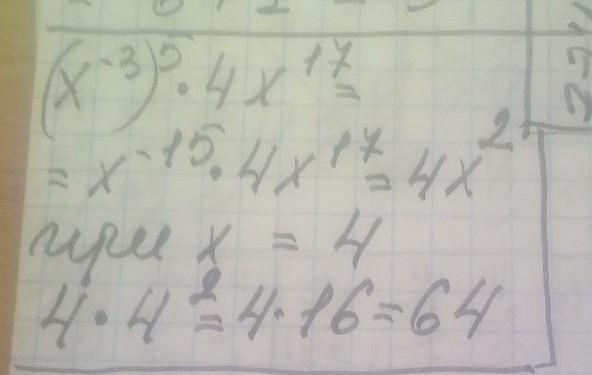 (x⁻³)⁵ · 4x¹⁷ =
= x⁻¹⁵ · 4x¹⁷ = 4x²
при x = 4
4 · 4² = 4 · 16 = 64